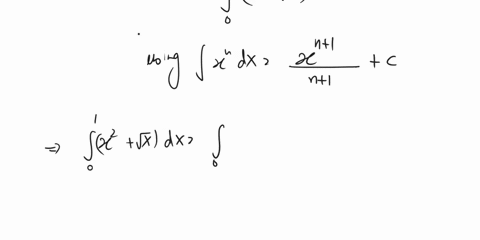 ∫₀
using ∫ xⁿ dx = xⁿ⁺¹/n+1 + c
⇒ ∫₀¹ (x² + √x) dx = ∫₀